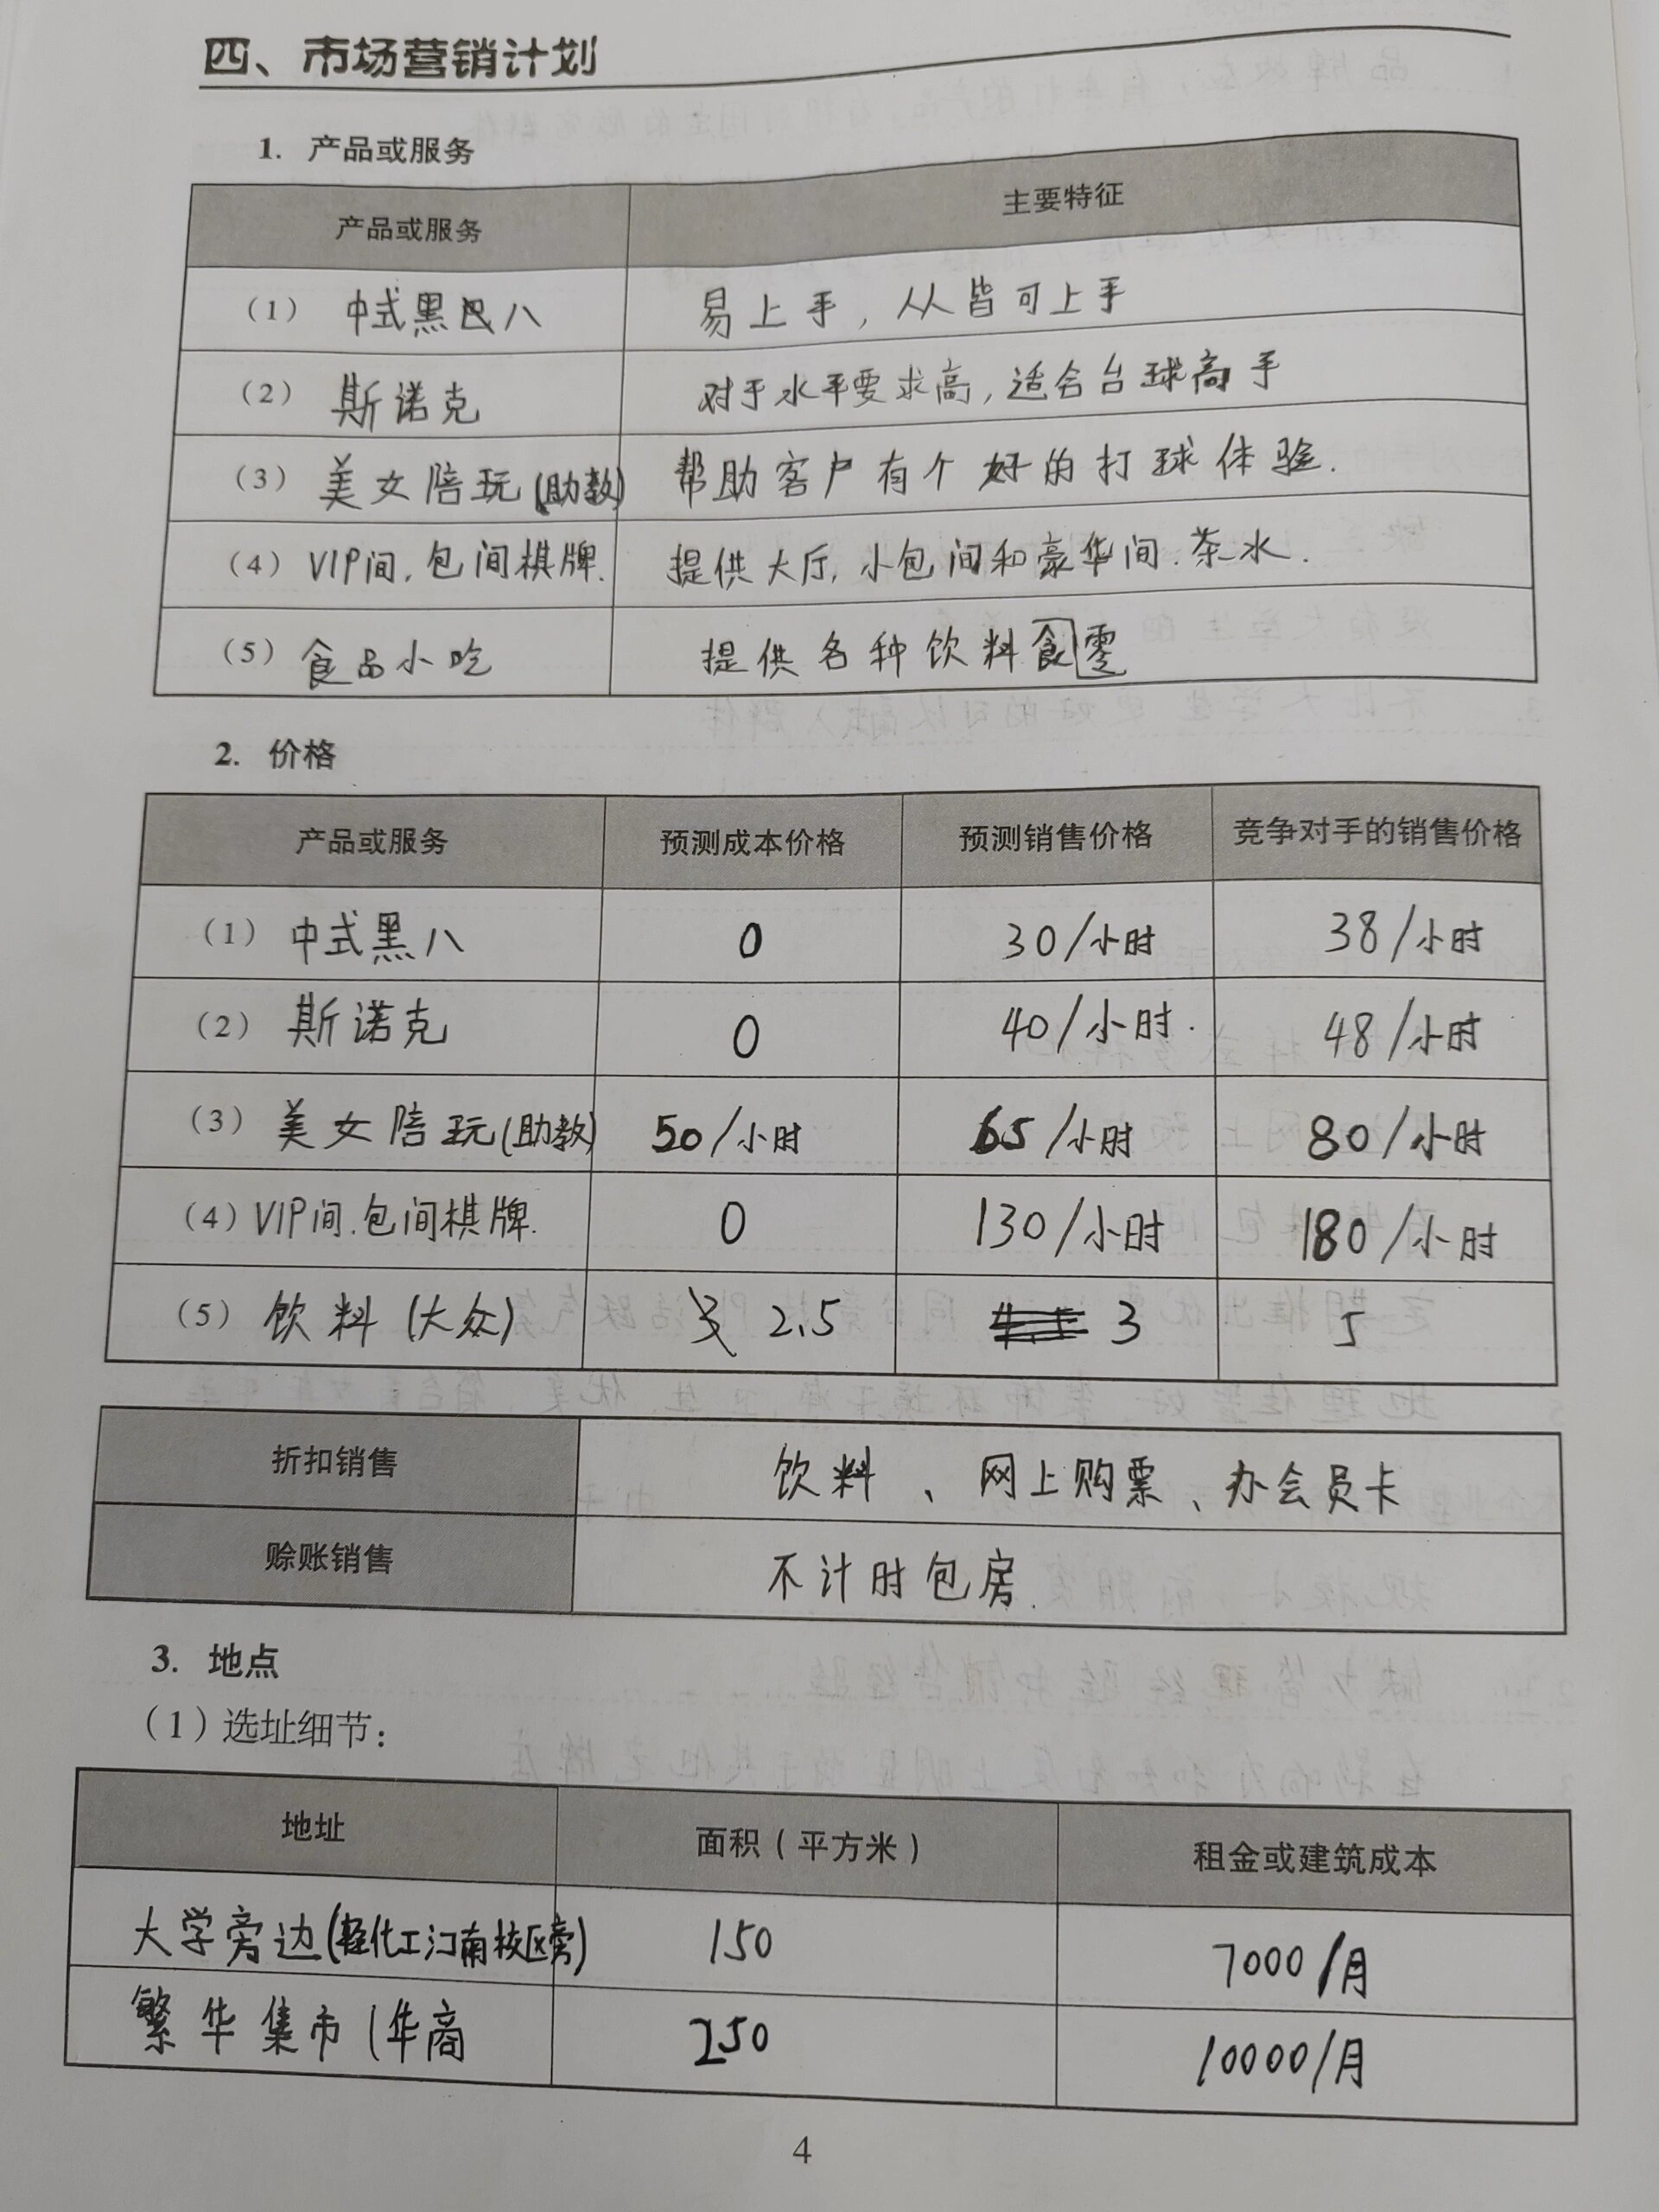 四、市场营销计划
1. 产品或服务
产品或服务 主要特征
(1) 中式黑八 易上手，人皆可上手
(2) 斯诺克 对于水平要求高，适合台球高手
(3) 美女陪玩(助教) 帮助客户有个好的打球体验.
(4) VIP间.包间棋牌. 提供大厅,小包间和豪华间.茶水.
(5) 食品小吃 提供各种饮料食零
2. 价格
产品或服务 预测成本价格 预测销售价格 竞争对手的销售价格
(1) 中式黑八 0 30/小时 38/小时
(2) 斯诺克 0 40/小时. 48/小时
(3) 美女陪玩(助教) 50/小时 65/小时 80/小时
(4) VIP间.包间棋牌. 0 130/小时 180/小时
(5) 饮料(大众) 2.5 3 5
折扣销售 饮料、网上购票、办会员卡
赊账销售 不计时包房.
3. 地点
(1)选址细节：
地址 面积(平方米) 租金或建筑成本
大学旁边(轻化工江南校区旁) 150 7000/月
繁华集市(华商 250 10000/月
4